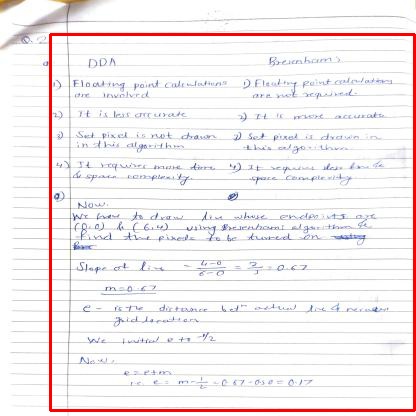 Q.2
a) DDA Bresenham's
1) Floating point calculations are involved 1) Floating point calculations are not required.
2) It is less accurate 2) It is more accurate
3) Set pixel is not drawn in this algorithm 3) Set pixel is drawn in this algorithm.
4) It requires more time & space complexity. 4) It requires less time & space complexity.
Now.
We have to draw line whose endpoints are
(0,0) & (6,4) using Bresenhams algorithm &
find the pixels to be turned on
Slope of line = 4-0/6-0 = 2/3 = 0.67
m=0.67
e - is the distance betn actual line & nearest
grid location
We initial e to -1/2
Now,
e = e+m
i.e. e = m-1/2 = 0.67-0.50 = 0.17